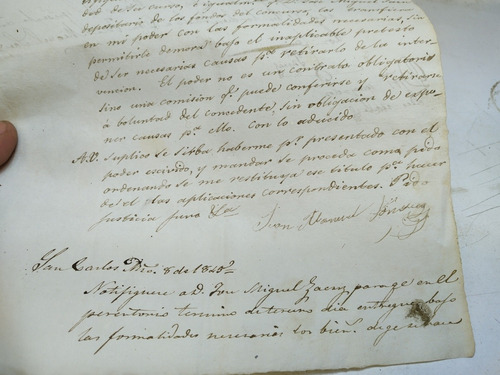 dad de ser curso, é igualmente q.e D. José Miguel
depositario de los fondos del
en mi poder con las formalidades necesarias, sin
permitirle demora bajo el inaplicable pretesto
de ser necesarias causas p.a retirarlo de la inter
vencion. El poder no es un contrato obligatorio
sino una comision q.e puede conferirse y retirarse
á voluntad del concedente, sin obligacion de expo
ner causas p.a ello. Con lo aducido
A.V. suplico se sirba haberme p.r presentado con el
poder escirido, y mandar se proceda como pido
ordenando se me restituya su titulo p.a hacer
de el las aplicaciones correspondientes. Pido
justicia juro &a
Juan Manuel
San Carlos Nio. 8 de 1845.
Notifiquese a D. José Miguel para q.e en el
perentorio termino de tercero dia entregue bajo
las formalidades necesarias los bienes de q.e se hace